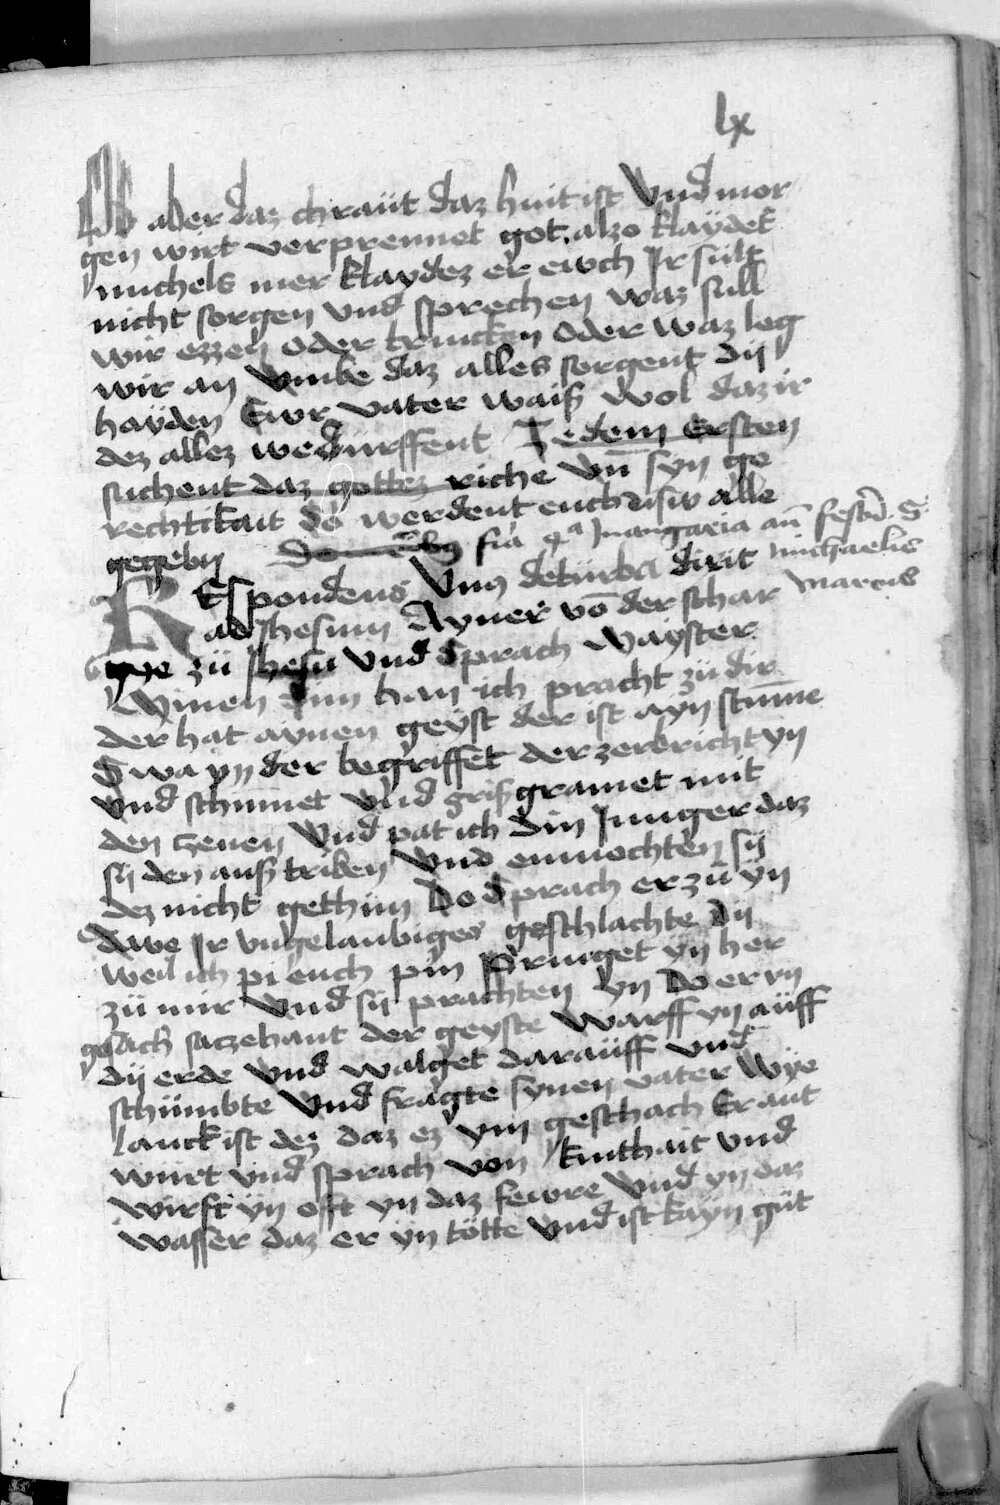 lx
Ob aber daz chraüt daz hüit ist Vnd mor
gen wirt verprennet got also klaÿdet
michels mer klaydez er ewch Ir sült
nicht sorgen vnd sprechen waz süll
wir ezzen oder trincken oder waz leg
wir an Vmbe daz alles sorgent dij
haÿden Ewr vater waiß wol daz ir
dez allez wedürffent Zedem Ersten
suchent daz gottez riche vn̄ syn ge
rechtikait do werdent euch alle
gegebn
fia 4ᵃ In angaria an̄ festū S
michaelis
REspondens Vnus de turba dixit
ad Ihesum Ayner vō der schar
Marcus
zü Ihesu Vnd Sprach Wayster
Mynen sün han ich pracht zü dir
der hat aynen geÿst der ist aÿn stum̄e
Swa ÿn der begriffet der zerbricht yn
Vnd schum̄et Vnd grißgramet mit
den zenen Vnd pat ich din Iunger daz
sij den auß triben Vnd enmochten sij
dez nicht gethun Do Sprach er zü yn
Awe Ir vngelaubiges geschlächte Dij
weil ich pi euch pin Pringet yn her
zü mir Vnd sij prachten yn Do er yn
gesach saczehant der geyste Warff yn aüff
dij erde Vnd walget daraüff vnd
schümbte Vnd fragte synen vater Wÿe
lanck ist dez daz ez ym geschach Er ant
würt vnd sprach von kinthait vnd
wirft ÿn offt yn daz fewre Vnd yn daz
wasser daz er ÿn tötte Vnd ist kayn güt